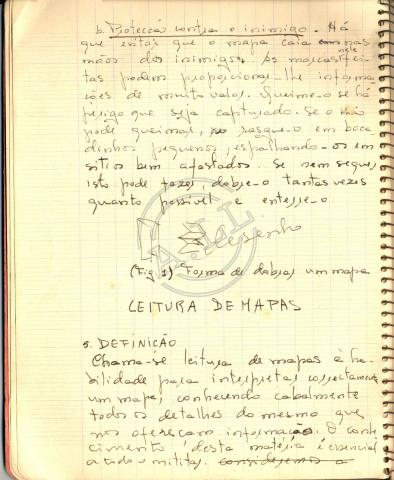 b. Protecção contra o inimigo. Há
que evitar que o mapa caia nas
mãos dos inimigos. As marcas feitas nele
tas podem proporcionar-lhe informa
ções de muito valor. Queime-o se há
perigo que seja capturado. Se o não
pode queimar, rasgue-o em boca
dinhos pequenos, espalhando-os em
sitios bem afastados. Se nem sequer
isto pode fazer, dobre-o tantas vezes
quanto possivel e enterre-o
desenho
(Fig. 1) Forma de dobrar um mapa
LEITURA DE MAPAS
5. DEFINIÇÃO
Chama-se leitura de mapas à ha
bilidade para interpretar correctamente
um mapa, conhecendo cabalmente
todos os detalhes do mesmo que
nos ofereçam informação. O conhe
cimento desta matéria é essencial
a todo o militar. consideremos a